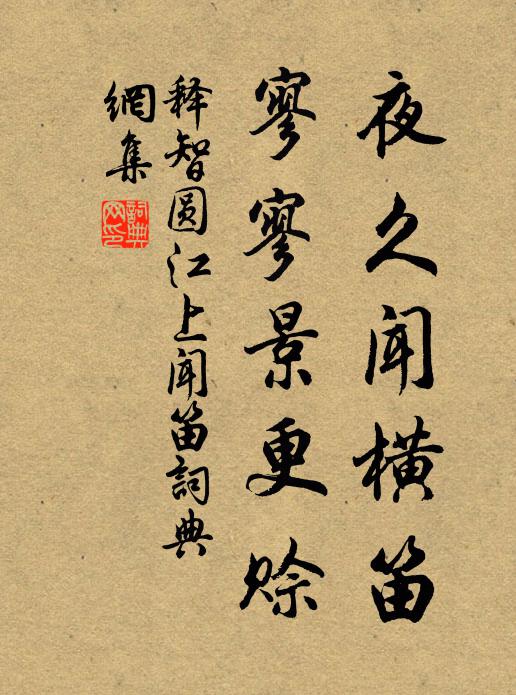 夜久闻横笛
寥寥景更赊
释智圆江上闻笛詞典
網集
詞典
网印